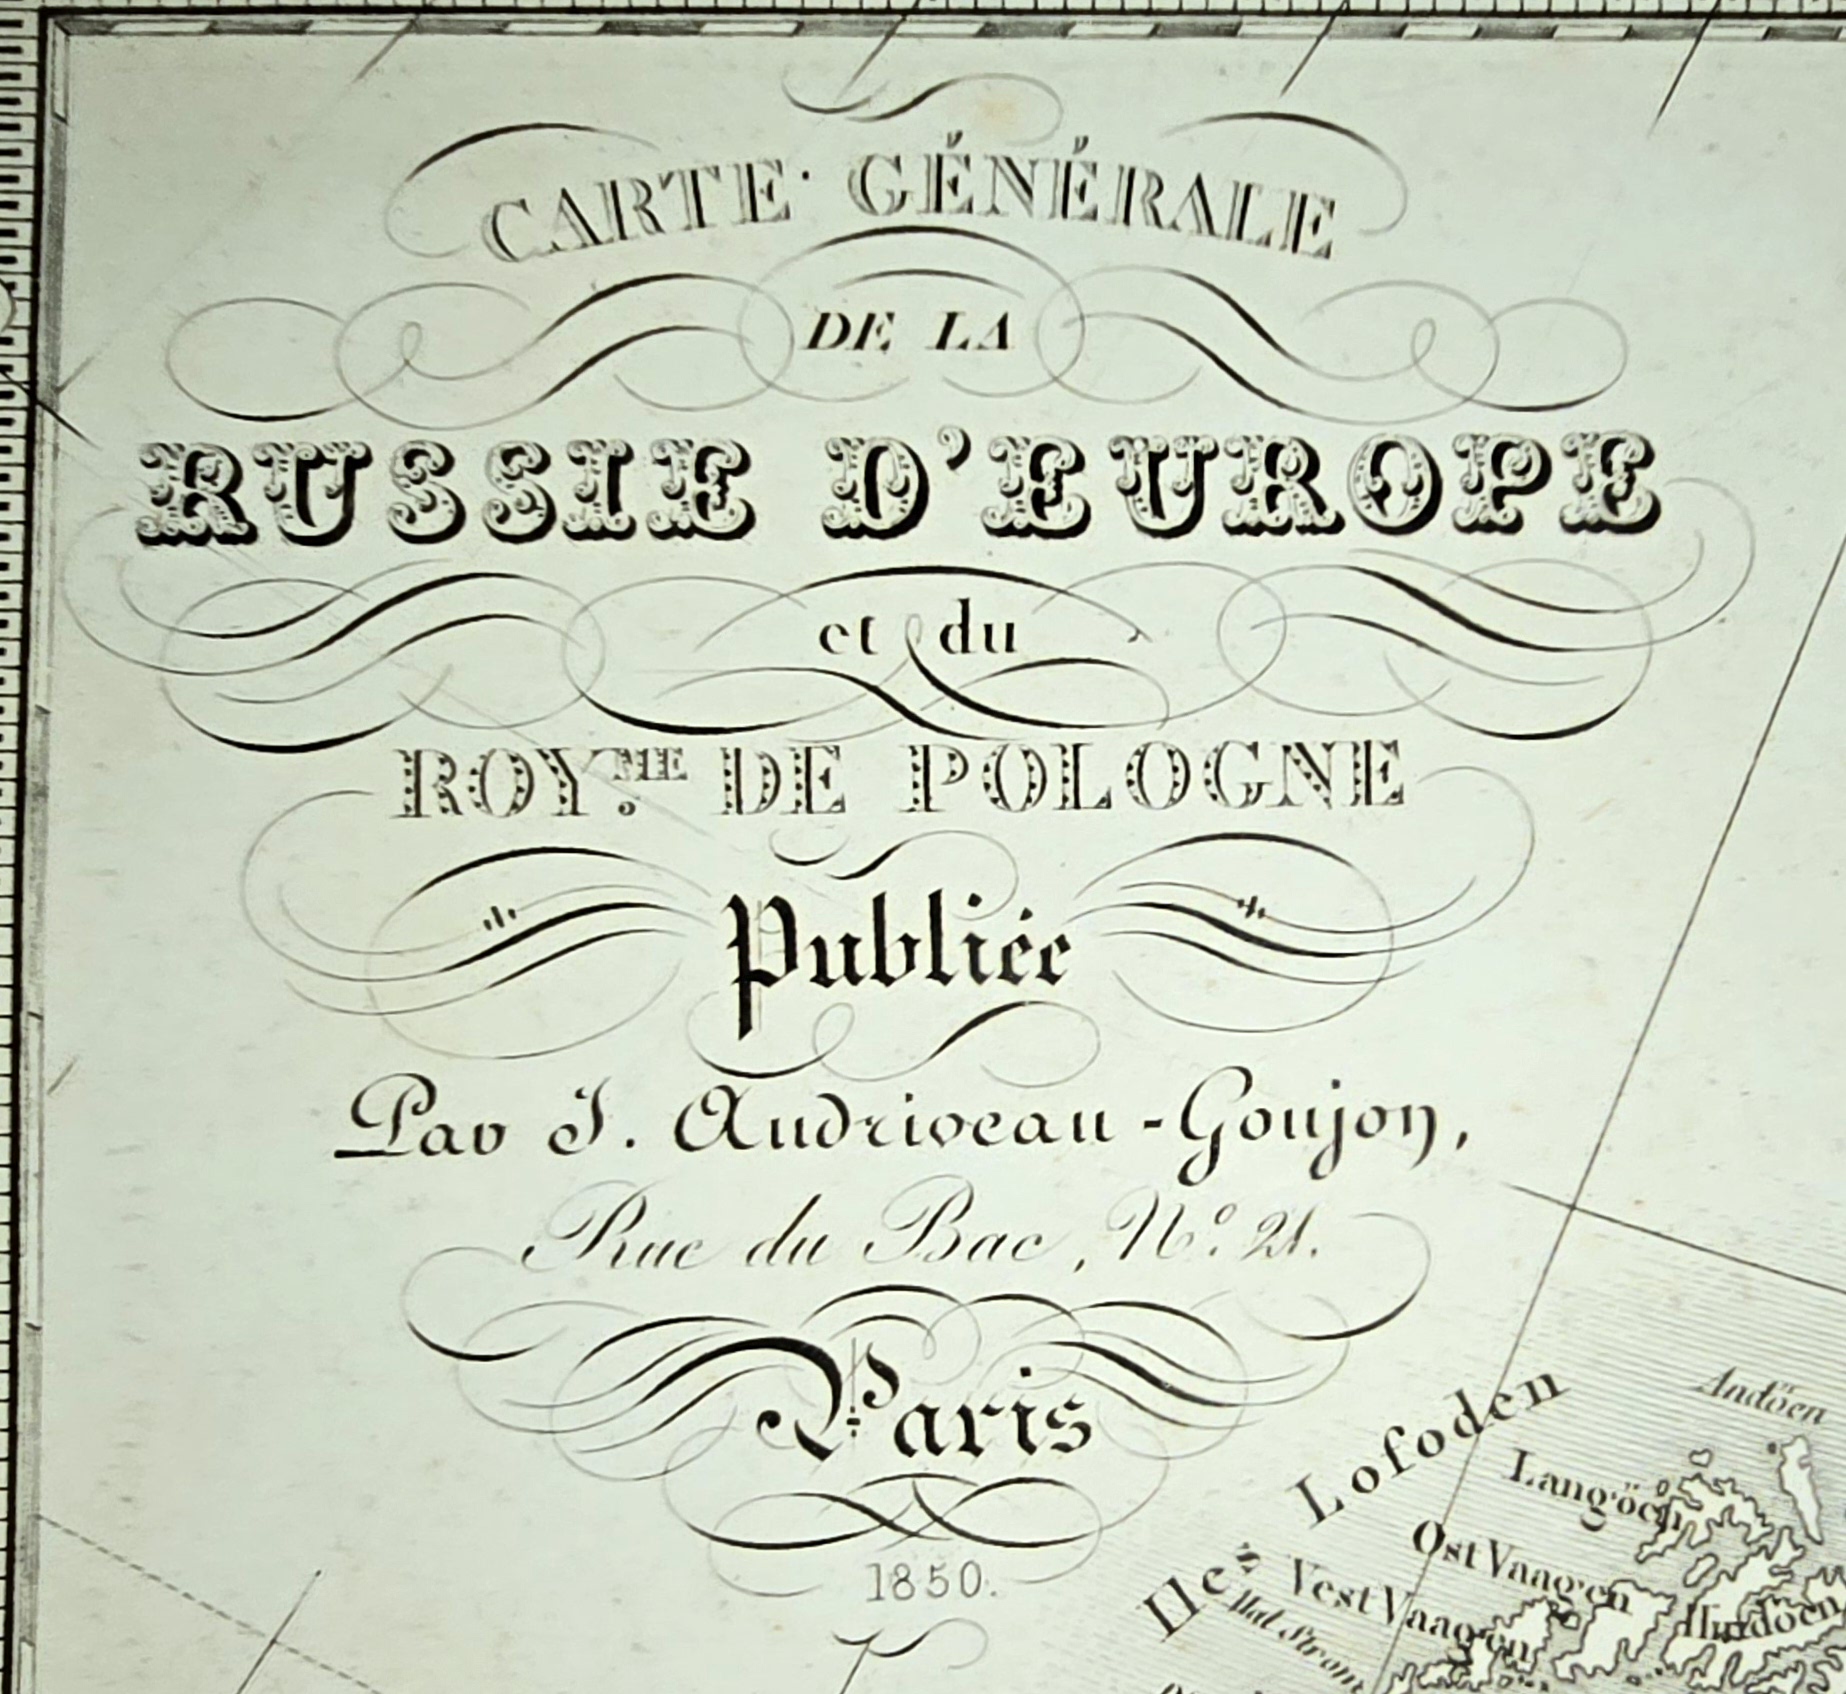 CARTE GÉNÉRALE
DE LA
RUSSIE D'EUROPE
et du
ROY.ME DE POLOGNE
Publiée
Par J. Andriveau-Goujon,
Rue du Bac, N.º 21.
Paris
1850.
Iles Lofoden
Andöen
Langöen
Ost Vaagen
Vest Vaagen
Hindöen
Mal Strom